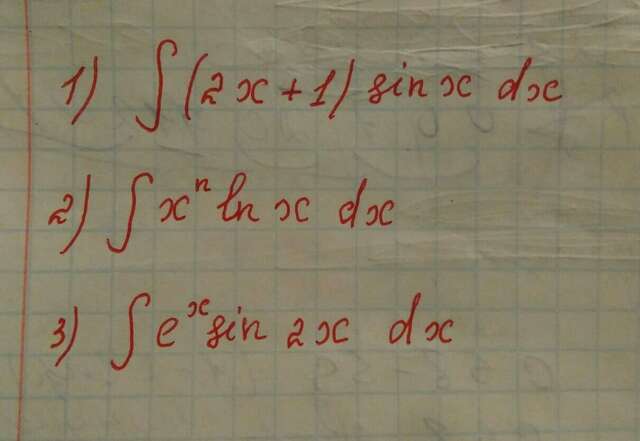 1) ∫ (2x+1) sin x dx
2) ∫ xⁿ ln x dx
3) ∫ eˣ sin 2x dx